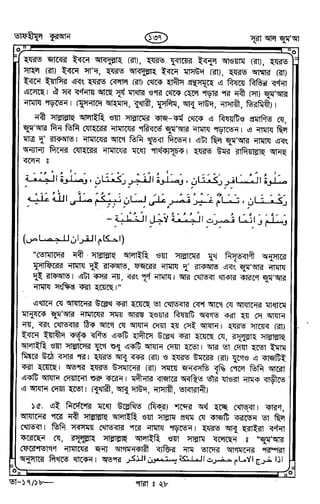 তাফহীমুল কুরআন ১৩৭ সূরা আল জুম'আ
হযরত জাবের ইবনে আবদুল্লাহ (রা), হযরত যুবায়ের ইবনুল আওয়াম (রা), হযরত
সাহল (রা) ইবনে সা'দ, হযরত আবদুল্লাহ ইবনে মাসউদ (রা), হযরত আম্মার (রা)
ইবনে ইয়াসির এবং হযরত বেলাল (রা) থেকে হাদীস গ্রন্থসমূহে এ বিষয়ে বিভিন্ন বর্ণনা
এসেছে। ঐ সব বর্ণনায় আছে সূর্য মাথার ওপর থেকে হেলে পড়ার পর নবী (সা) জুম'আর
নামায পড়তেন। (মুসনাদে আহমাদ, বুখারী, মুসলিম, আবু দাউদ, নাসায়ী, তিরমিযী)।
নবী সাল্লাল্লাহু আলাইহি ওয়া সাল্লামের কাজ-কর্ম থেকে এ বিষয়টিও প্রমাণিত যে,
জুম'আর দিন তিনি যোহরের নামাযের পরিবর্তে জুম'আর নামায পড়তেন। এ নামায ছিল
মাত্র দু' রাকআত। নামাযের আগে তিনি খুতবা দিতেন। এটা ছিল জুম'আর নামায এবং
অন্যান্য দিনের যোহরের নামাযের মধ্যে পার্থক্যসূচক। হযরত উমর রাদিয়াল্লাহু আনহু
বলেন ঃ
صلوة المسافر ركعتان ، وصلوة الفجر ركعتان ، وصلوة الجمعة
ركعتان ، تمام غير قصر على لسان نبيكم صلى الله عليه
وسلم وانما قصرت الجمعة لاجل الخطبة –
(احكام القران للجصاص)
"তোমাদের নবী সাল্লাল্লাহু আলাইহি ওয়া সাল্লামের মুখ নিসৃতবাণী অনুসারে
মুসাফিরের নামায দুই রাকআত, ফজরের নামায দু' রাকআত এবং জুম'আর নামায
দুই রাকআত। এটা কসর নয়, বরং পূর্ণ নামায। আর খোতবা থাকার কারণে জুম'আর
নামায সংক্ষিপ্ত করা হয়েছে।"
এখানে যে আযানের উল্লেখ করা হয়েছে তা খোতবার বেশ আগে যে আযানের মাধ্যমে
মানুষকে জুম'আর নামাযের সময় আরম্ভ হওয়ার বিষয়টি অবগত করা হয় সে আযান
নয়, বরং খোতবার ঠিক আগে যে আযান দেয়া হয় সেই আযান। হযরত সায়েব (রা)
ইবনে ইয়াযীদ কর্তৃক বর্ণিত একটি হাদীসে উল্লেখ করা হয়েছে যে, রসূলুল্লাহ সাল্লাল্লাহু
আলাইহি ওয়া সাল্লামের যুগে শুধু একটি আযান দেয়া হতো। আর তা দেয়া হতো ইমাম
মিম্বরে উঠে বসার পর। হযরত আবু বকর (রা) ও হযরত উমরের (রা) যুগেও এ কাজটিই
করা হয়েছে। অতপর হযরত উসমানের (রা) সময়ে জনবসতি বৃদ্ধি পেলে তিনি আরো
একটি আযান দেয়ানো শুরু করেন। মদীনার বাজারে অবস্থিত তাঁর যাওরা নামক বাড়ীতে
এ আযান দেয়া হতো। (বুখারী, আবু দাউদ, নাসায়ী, তাবারানী)
১৫. এই নির্দেশের মধ্যে উল্লেখিত (যিকর) শব্দের অর্থ হচ্ছে খোতবা। কারণ,
আযানের পরে নবী সাল্লাল্লাহু আলাইহি ওয়া সাল্লাম প্রথম যে কাজটি করতেন তা ছিল
খোতবা। তিনি সবসময় খোতবার পরে নামায পড়তেন। হযরত আবু হুরাইরা বর্ণনা
করেছেন যে, রসূলুল্লাহ সাল্লাল্লাহু আলাইহি ওয়া সাল্লাম বলেছেন ঃ "জুম'আর
ফেরেশতাগণ নামাযের জন্য আগমনকারী ব্যক্তির নাম তাদের আগমনের পরম্পরা
অনুসারে লিখতে থাকেন। অতপর اذا خرج الامام حضرت الملئكة يستمعون الذكر
তা—১৭/১৮— পারা ঃ ২৮